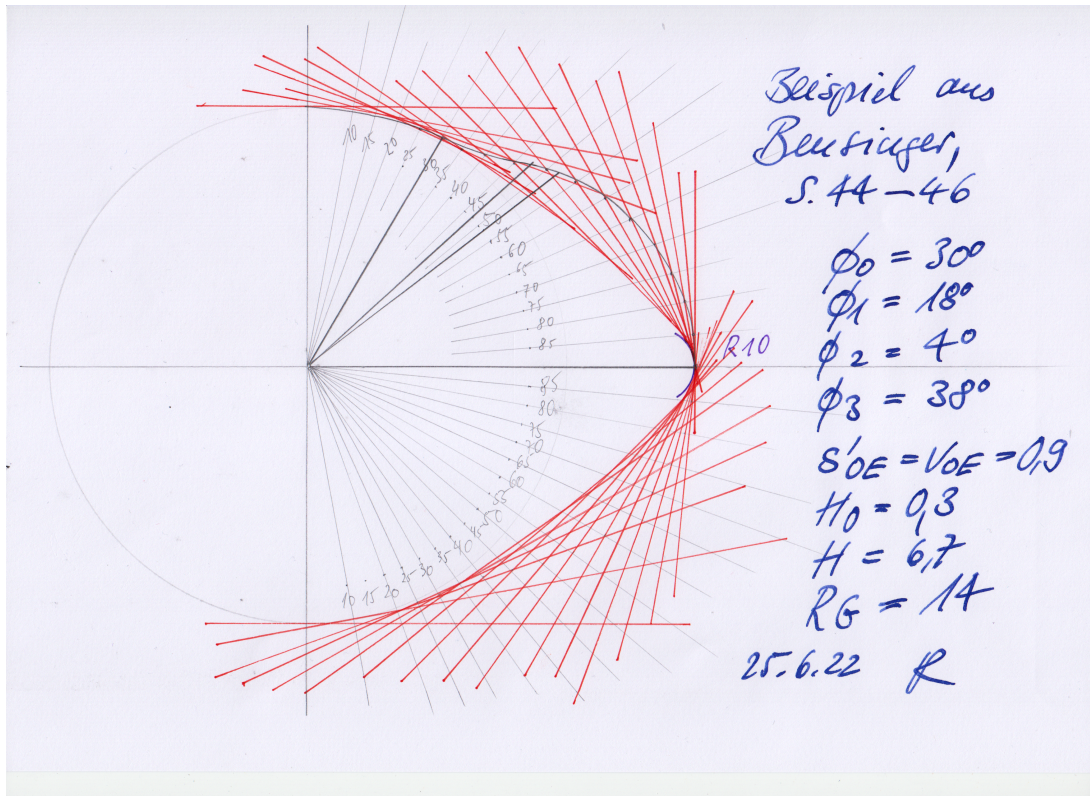 Beispiel aus
Bensinger,
S. 44 – 46
ϕ0 = 30°
ϕ1 = 18°
ϕ2 = 4°
ϕ3 = 38°
S'OE = VOE = 0,9
H0 = 0,3
H = 6,7
RG = 14
25.6.22
R10
10
15
20
25
30
35
40
45
50
55
60
65
70
75
80
85
85
80
75
70
65
60
55
50
45
40
35
30
25
20
15
10